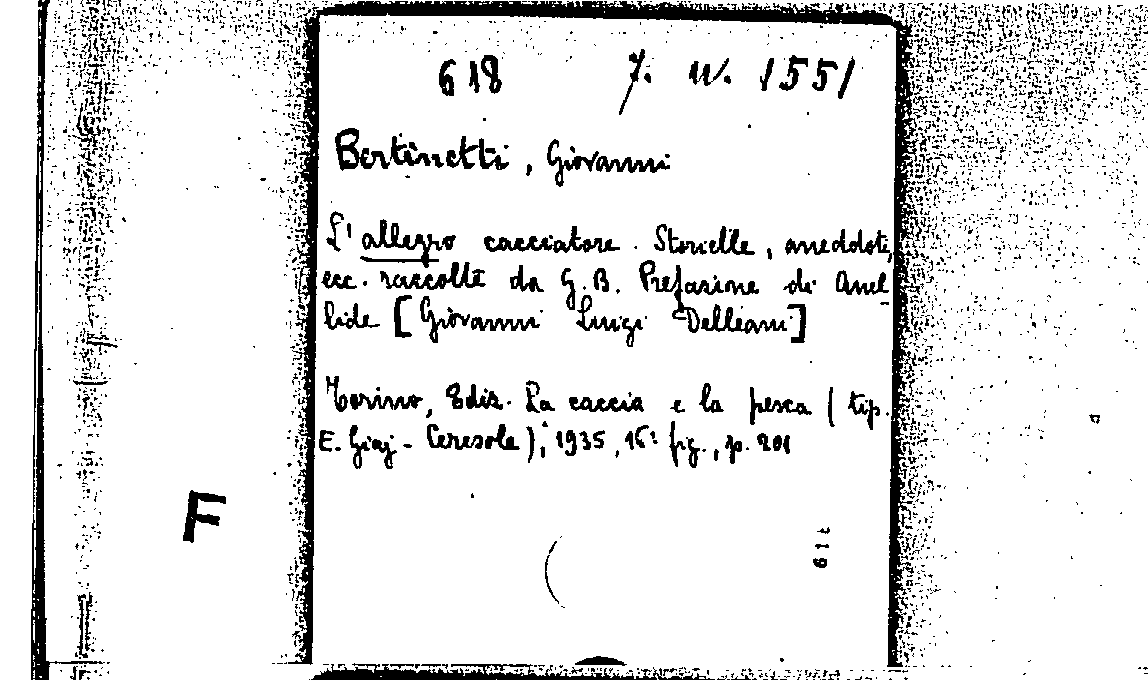 618 7. W. 1551
Bertinetti, Giovanni
L'allegro cacciatore. Storielle, aneddoti,
ecc. raccolti da G.B. Prefazione di Anel
lide [Giovanni Luigi Delleani]
Torino, Ediz. La caccia e la pesca (tip.
E. Giaj - Ceresole), 1935, 16° fig., p. 201
F